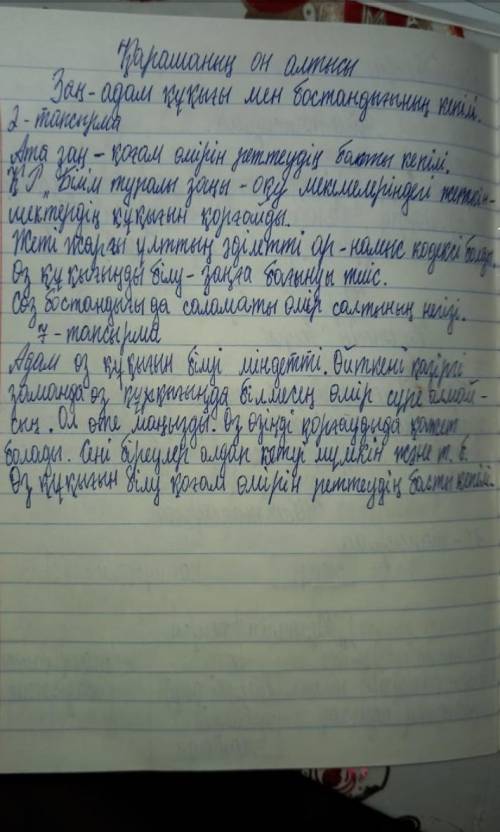 Қарашаның он алтысы
Заң - адам құқығы мен бостандығының кепілі.
2 - тапсырма
Ата заң - қоғам өмірін реттеудің басты кепілі.
ҚР „Білім туралы заңы - оқу мекемелеріндегі жеткін-
шектердің құқығын қорғайды.
Жеті жарғы ұлттың әділетті ар - намыс кодексі болды.
Өз құқығыңды білу - заңға бағынды тиіс.
Сөз бостандығы да саламаты өмір салтының негізі.
7 - тапсырма
Адам өз құқығын білуі міндетті. Өйткені қазіргі
заманда өз құқығыңда білмесең өмір сүре алмай-
сың. Ол өте маңызды. Өз өзіңді қорғаудыда қажет
болады. Сені біреулер алдап кетуі мүмкін және т. б.
Өз құқығын білу қоғам өмірін реттеудің басты кепілі.